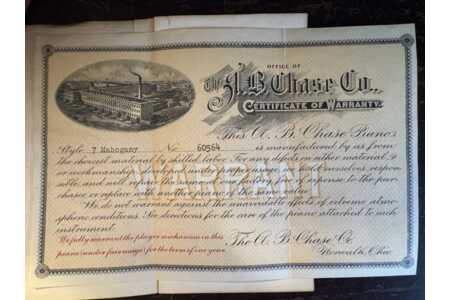 OFFICE OF
The A.B. Chase Co.,
CERTIFICATE OF WARRANTY.
This A. B. Chase Piano,
Style 7 Mahogany No 60564 is manufactured by us from
the choicest material by skilled labor. For any defects in either material
or workmanship, developed under proper usage, we hold ourselves respons-
and will repair the same at the factory free of expense to the pur-
chaser, or replace with another of the same value.
WARRANT
We do not warrant against the unavoidable effects of extreme atmo-
spheric conditions. See directions for the care of the piano attached to each
instrument.
We fully warrant the player mechanism in this
piano (under fair usage) for the term of one year.
The A. B. Chase Co.
Norwalk, Ohio.